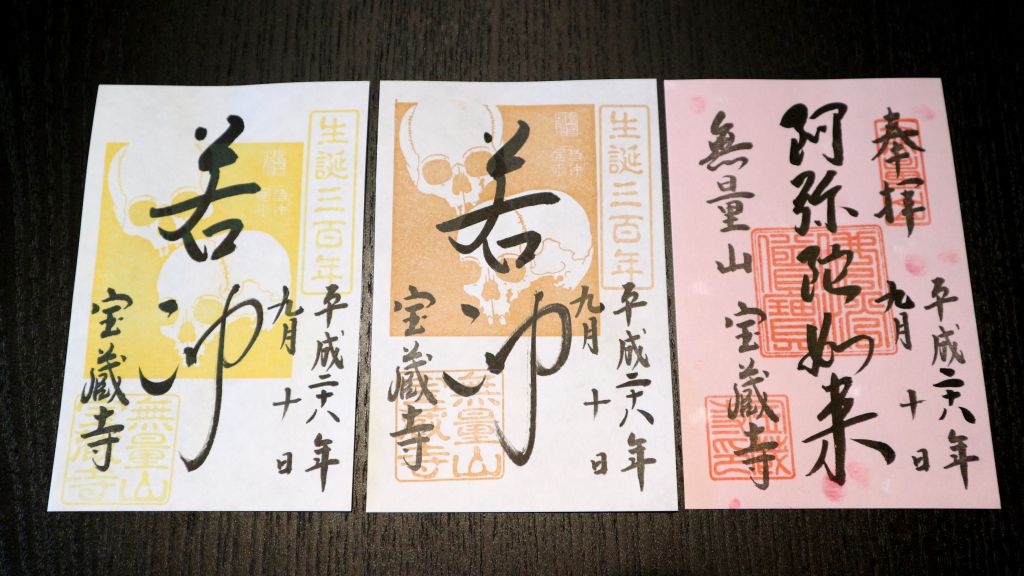 生誕三百年
若冲
平成二十八年
九月十日
宝蔵寺
無量山
宝蔵寺
生誕三百年
若冲
平成二十八年
九月十日
宝蔵寺
無量山
宝蔵寺
奉拝
阿弥陀如来
平成二十八年
九月十日
無量山
宝蔵寺